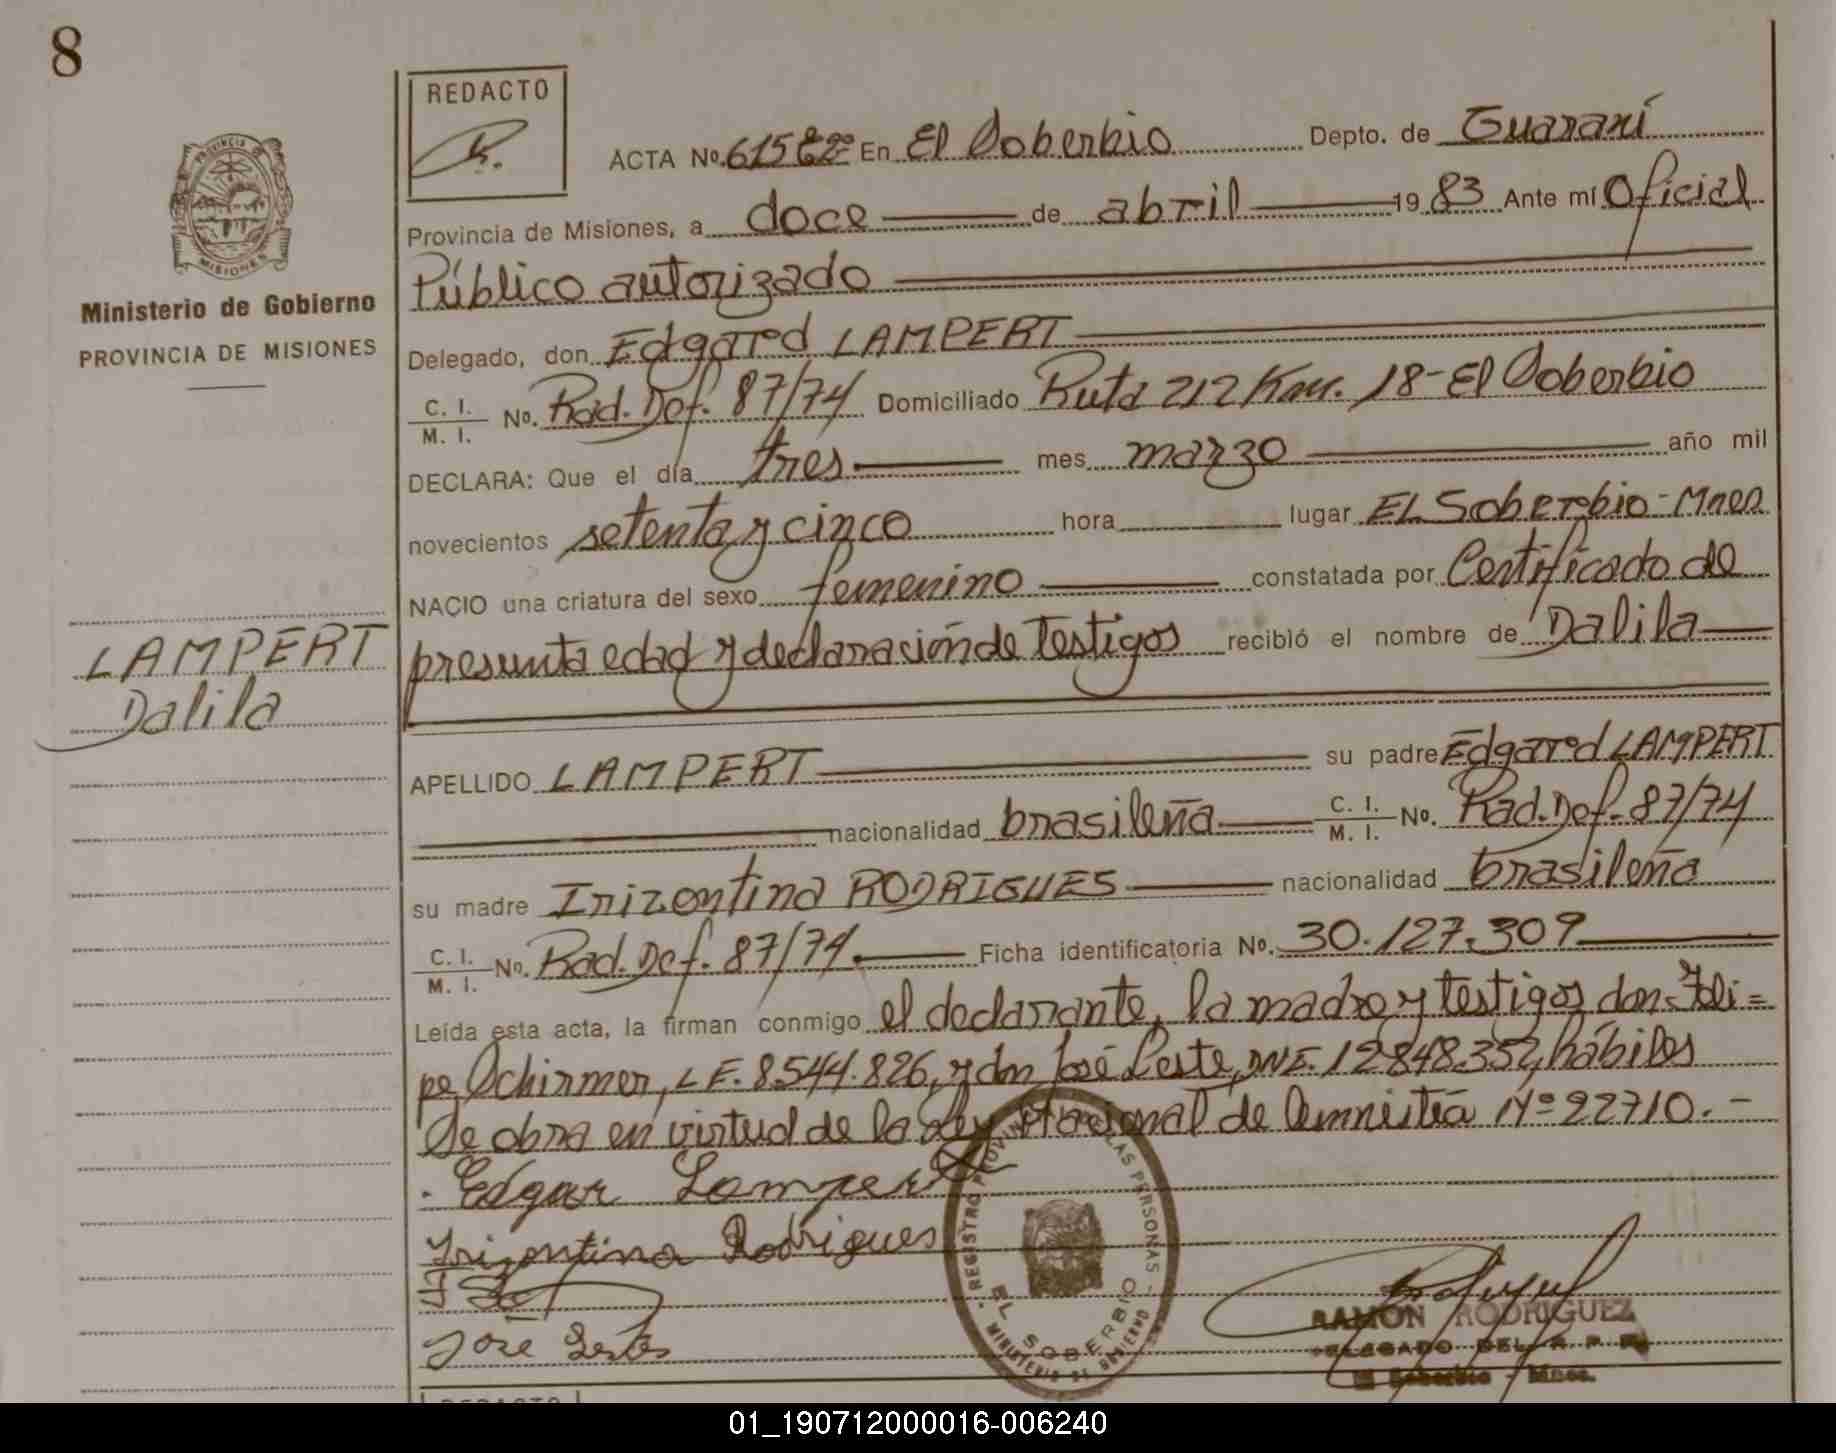 8
REDACTO
ACTA Nº 615 En El Soberbio Depto. de Guaraní
Provincia de Misiones, a doce de abril 1983 Ante mí Oficial
Público autorizado
Delegado, don Edgard LAMPERT
C. I. / M. I. Nº. Rad. Def. 87/74 Domiciliado Ruta 212 Km. 18 - El Soberbio
DECLARA: Que el día tres mes marzo año mil
novecientos setenta y cinco hora lugar EL Soberbio - Mnes
NACIO una criatura del sexo femenino constatada por Certificado de
presunta edad y declaración de Testigos recibió el nombre de Dalila
APELLIDO LAMPERT su padre Edgard LAMPERT
nacionalidad brasileña C. I. / M. I. Nº. Rad. Def. 87/74
su madre Irizontina RODRIGUES nacionalidad brasileña
C. I. / M. I. Nº. Rad. Def. 87/74 Ficha identificatoria Nº. 30.127.309
Leída esta acta, la firman conmigo el declarante, la madre y testigos don Feli=
pe Schirmer, L E. 8.544.826, y don José Leste, DNI. 12.848.352, hábiles
Se obra en virtud de la Ley Nacional de Amnistía Nº 22710. -
Edgar Lampert
Irizontina Rodrigues
José Lestes
PROVINCIA DE MISIONES
Ministerio de Gobierno
PROVINCIA DE MISIONES
LAMPERT
Dalila
REGISTRO PROVINCIAL DE LAS PERSONAS
EL SOBERBIO
MINISTERIO DE GOBIERNO
RAMON RODRIGUEZ
DELEGADO DEL R. P. P.
El Soberbio - Mnes.
REDACTO
01_190712000016-006240